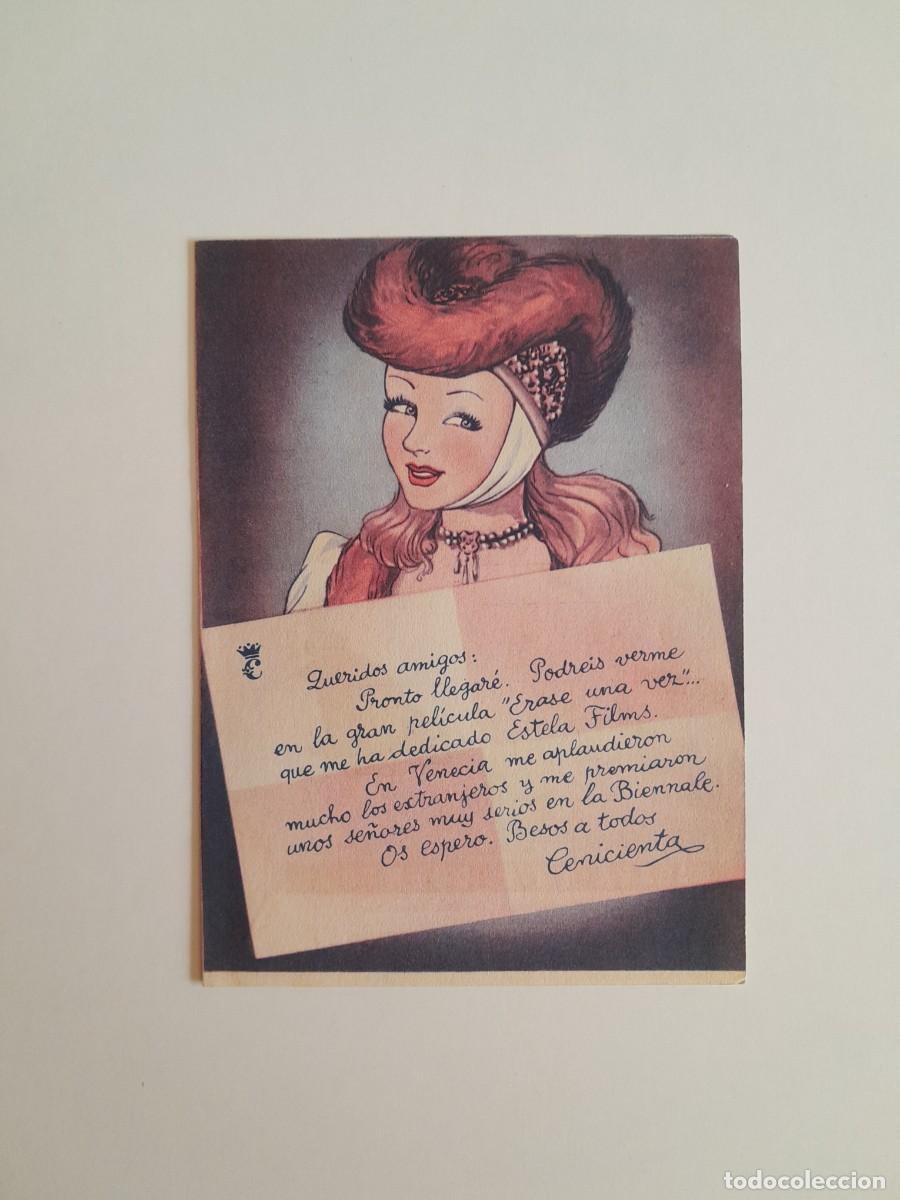 Queridos amigos:
Pronto llegaré. Podreis verme
en la gran película "Erase una vez"...
que me ha dedicado Estela Films.
En Venecia me aplaudieron
mucho los extranjeros y me premiaron
unos señores muy serios en la Biennale.
Os espero. Besos a todos
Cenicienta
todocoleccion